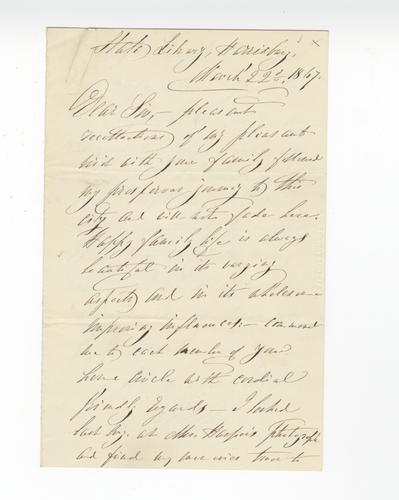 State Library, Harrisburg,
March 22d, 1867.
Dear Sir, – pleasant
recollections of my pleasant
visit with your family followed
my prosperous journey to this
city and will not fade here.
Happy family life is always
beautiful in its varying
aspects and in its wholesome
improving influences – commend
me to each member of your
home circle with cordial
friendly regards – I looked
last at Mrs. photograph
and find my to